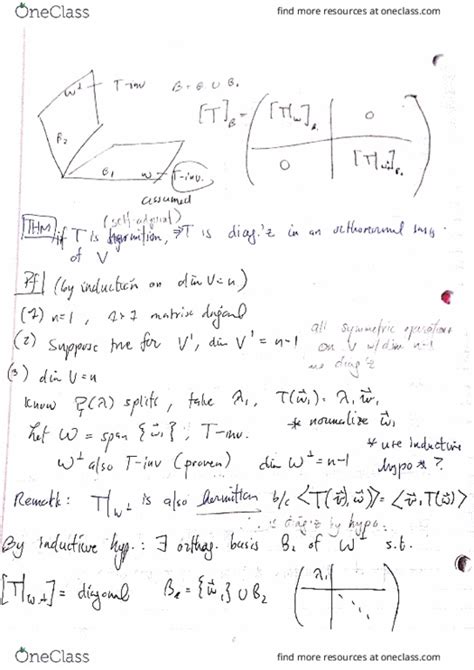 OneClass
find more resources at oneclass.com
W⊥ T-inv
B = B₁ ∪ B₂
[T]_B = ( [T|_W]_B₁ 0
0 [T|_W⊥]_B₂ )
B₂
B₁
W T-inv.
assumed
(self-adjoint)
THM if T is hermitian, ⇒ T is diag'z in an orthonormal basis
of V
Pf (by induction on dim V = n)
(1) n=1, 1×1 matrix diagonal
(2) Suppose true for V', dim V' = n-1
all symmetric operators
on V w/ dim n-1
diag'z
(3) dim V = n
Know (λ) splits, take λ₁, T(w⃗₁) = λ₁ w⃗₁
* normalize w⃗₁
Let W = span {w⃗₁}, T-inv.
* use inductive
hypo *?
W⊥ also T-inv (proven) dim W⊥ = n-1
Remark: T|_W⊥ is also hermitian b/c ⟨T(v⃗), w⃗⟩ = ⟨v⃗, T(w⃗)⟩
diag'z by hypo.
By inductive hyp.: ∃ orthog. basis B₂ of W⊥ s.t.
[T|_W⊥] = diagonal B = {w⃗₁} ∪ B₂ ( λ₁ ⋱ )
OneClass
find more resources at oneclass.com